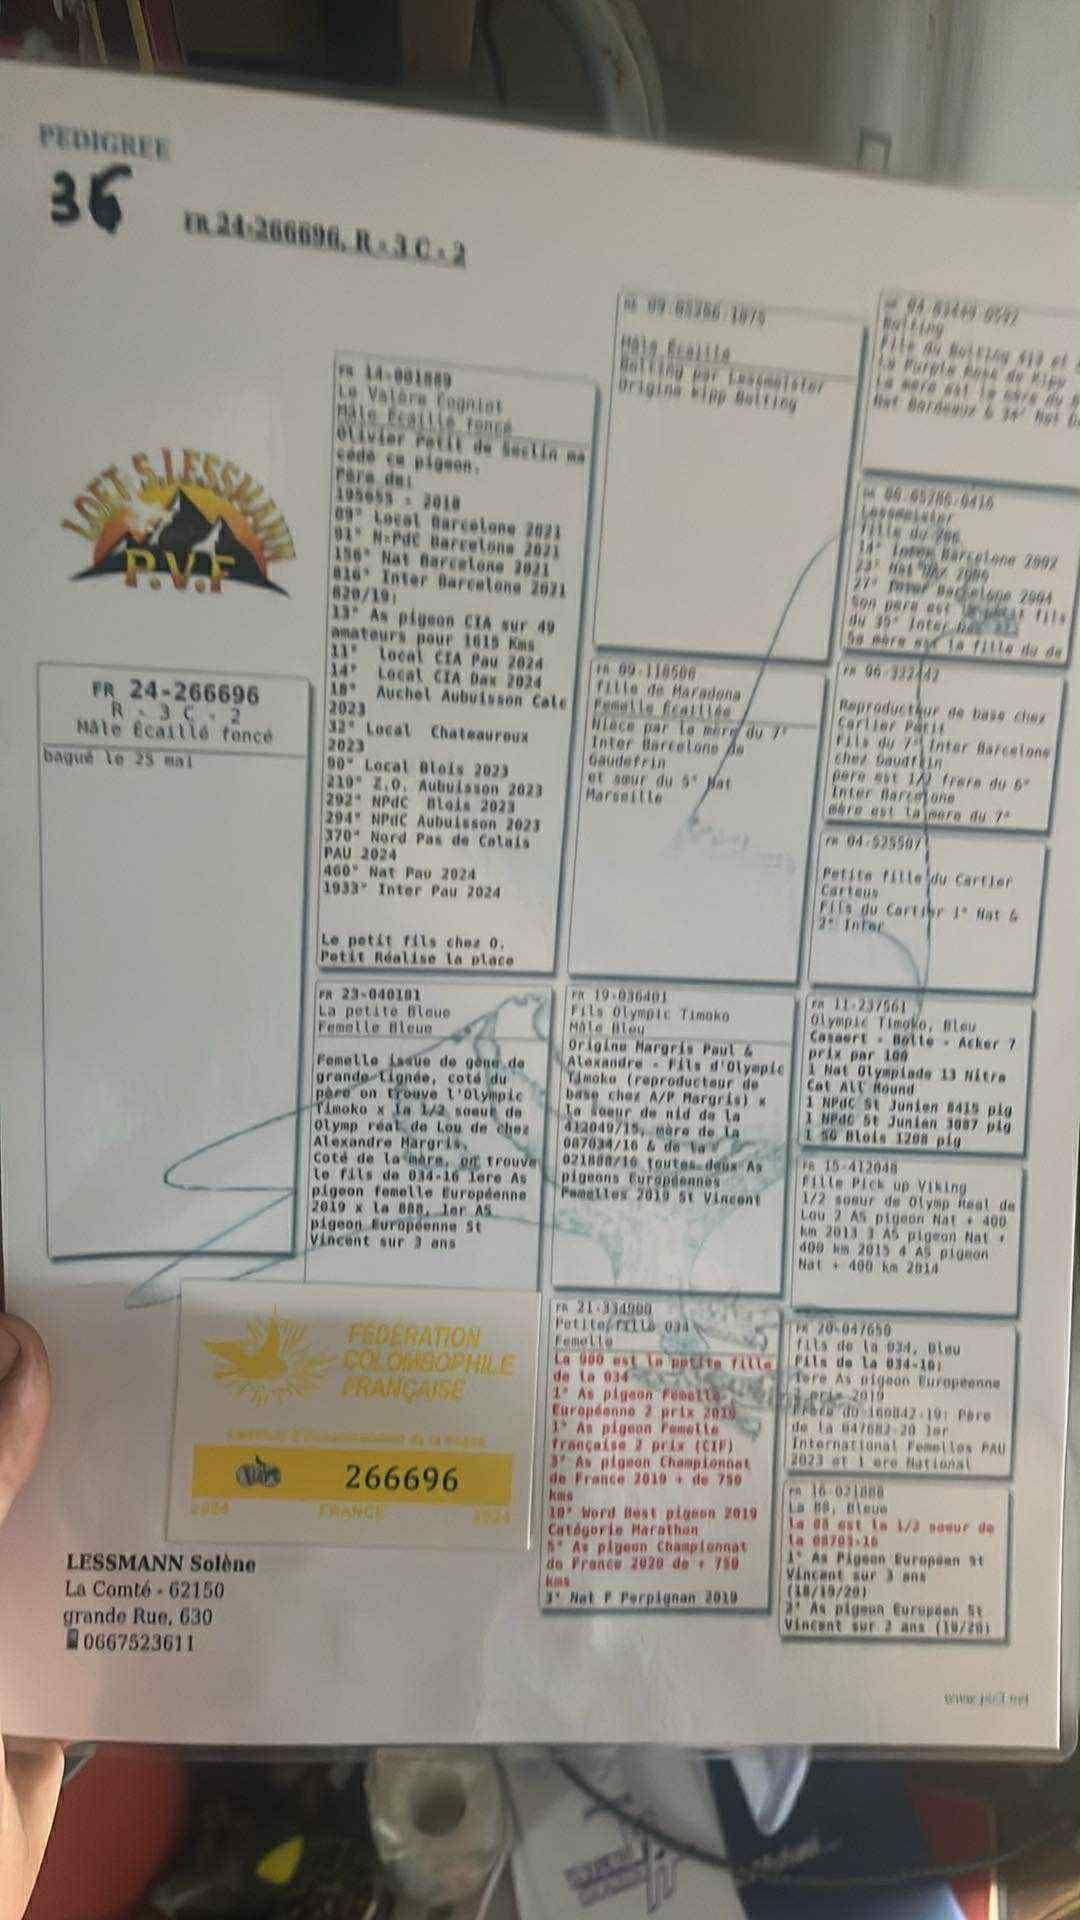 PEDIGREE
36
FR 24-266696, R - 3 C - 2
LOFT S.LESSMANN
P.V.F
FR 24-266696
R - 3 C - 2
Mâle Écaillé foncé
bagué le 25 mai
FR 14-001889
Le Valère Cogniot
Mâle Écaillé foncé
Olivier Petit de Seclin ma
cédé ce pigeon.
Père de:
195655 - 2018
89° Local Barcelone 2021
91° N=PdC Barcelone 2021
156° Nat Barcelone 2021
816° Inter Barcelone 2021
820/19:
13° As pigeon CIA sur 49
amateurs pour 1615 Kms
11° Local CIA Pau 2024
14° Local CIA Dax 2024
18° Auchel Aubuisson Calc
2023
32° Local Chateauroux
2023
90° Local Blois 2023
219° Z.O. Aubuisson 2023
292° NPdC Blois 2023
294° NPdC Aubuisson 2023
370° Nord Pas de Calais
PAU 2024
460° Nat Pau 2024
1933° Inter Pau 2024
Le petit fils chez O.
Petit Réalise la place
FR 23-040181
La petite Bleue
Femelle Bleue
Femelle issue de gène de
grande lignée, coté du
père on trouve l'Olympic
Timoko x la 1/2 soeur de
Olymp réal de Lou de chez
Alexandre Margris.
Coté de la mère, on trouve
le fils de 034-16 1ere As
pigeon femelle Européenne
2019 x la 888, 1er AS
pigeon Européenne St
Vincent sur 3 ans
09-05286-1075
Mâle Écaillé
Bolting par Lessmeister
Origine Kipp Bolting
FR 09-118506
fille de Maradona
Femelle Écaillée
Nièce par la mère du 7°
Inter Barcelone de
Gaudefrin
et sœur du 5° Nat
Marseille
FR 19-036401
Fils Olympic Timoko
Mâle Bleu
Origine Margris Paul &
Alexandre - Fils d'Olympic
Timoko (reproducteur de
base chez A/P Margris) x
la soeur de nid de la
412049/15, mère de la
087034/16 & de la
021888/16 toutes deux As
pigeons Européennes
Femelles 2019 St Vincent
FR 21-334900
Petite fille 034
Femelle
La 900 est la petite fille
de la 034
1° As pigeon Femelle
Européenne 2 prix 2019
1° As pigeon Femelle
française 2 prix (CIF)
3° As pigeon Championnat
de France 2019 + de 750
kms
10° Word Best pigeon 2019
Catégorie Marathon
5° As pigeon Championnat
de France 2020 de + 750
kms
3° Nat F Perpignan 2019
Bolting
Fils du Bolting 419 et
La Purple Rose de Kipp
La mère est la mère du
Nat Bordeaux & 34° Nat
Lessmeister
fille du 706
14° Inter Barcelone 2002
23° Nat 2006
27° Inter Barcelone 2004
Son pere est le petit fils
du 35° Inter
Sa mère est la fille du de
FR 96-322442
Reproducteur de base chez
Carlier Petit
fils du 7° Inter Barcelone
chez Gaudfrin
pere est 1/2 frere du 6°
Inter Barcelone
mère est la mere du 7°
FR 04-525507
Petite fille du Cartier
Carteus
Fils du Cartier 1° Nat &
2° Inter
FR 11-237561
Olympic Timoko, Bleu
Casaert - Bolle - Acker 7
prix par 100
1 Nat Olympiade 13 Nitra
Cat All Round
1 NPdC St Junien 8415 pig
1 NPdC St Junien 3087 pig
1 SG Blois 1208 pig
FR 15-412048
Fille Pick up Viking
1/2 soeur de Olymp Real de
Lou 2 AS pigeon Nat + 400
km 2013 3 AS pigeon Nat +
400 km 2015 4 AS pigeon
Nat + 400 km 2014
FR 20-047650
fils de la 034, Bleu
Fils de la 034-16:
1ere As pigeon Européenne
2 prix 2019
Frère du 160842-19: Père
de la 047682-20 1er
International Femelles PAU
2023 et 1 ere National
FR 16-021888
La 88, Bleue
la 88 est la 1/2 soeur de
la 08703-16
1° As Pigeon Européen St
Vincent sur 3 ans
(18/19/20)
3° As pigeon Européen St
Vincent sur 2 ans (19/20)
FÉDÉRATION
COLOMBOPHILE
FRANÇAISE
266696
2024 FRANCE 2024
LESSMANN Solène
La Comté - 62150
grande Rue, 630
0667523611